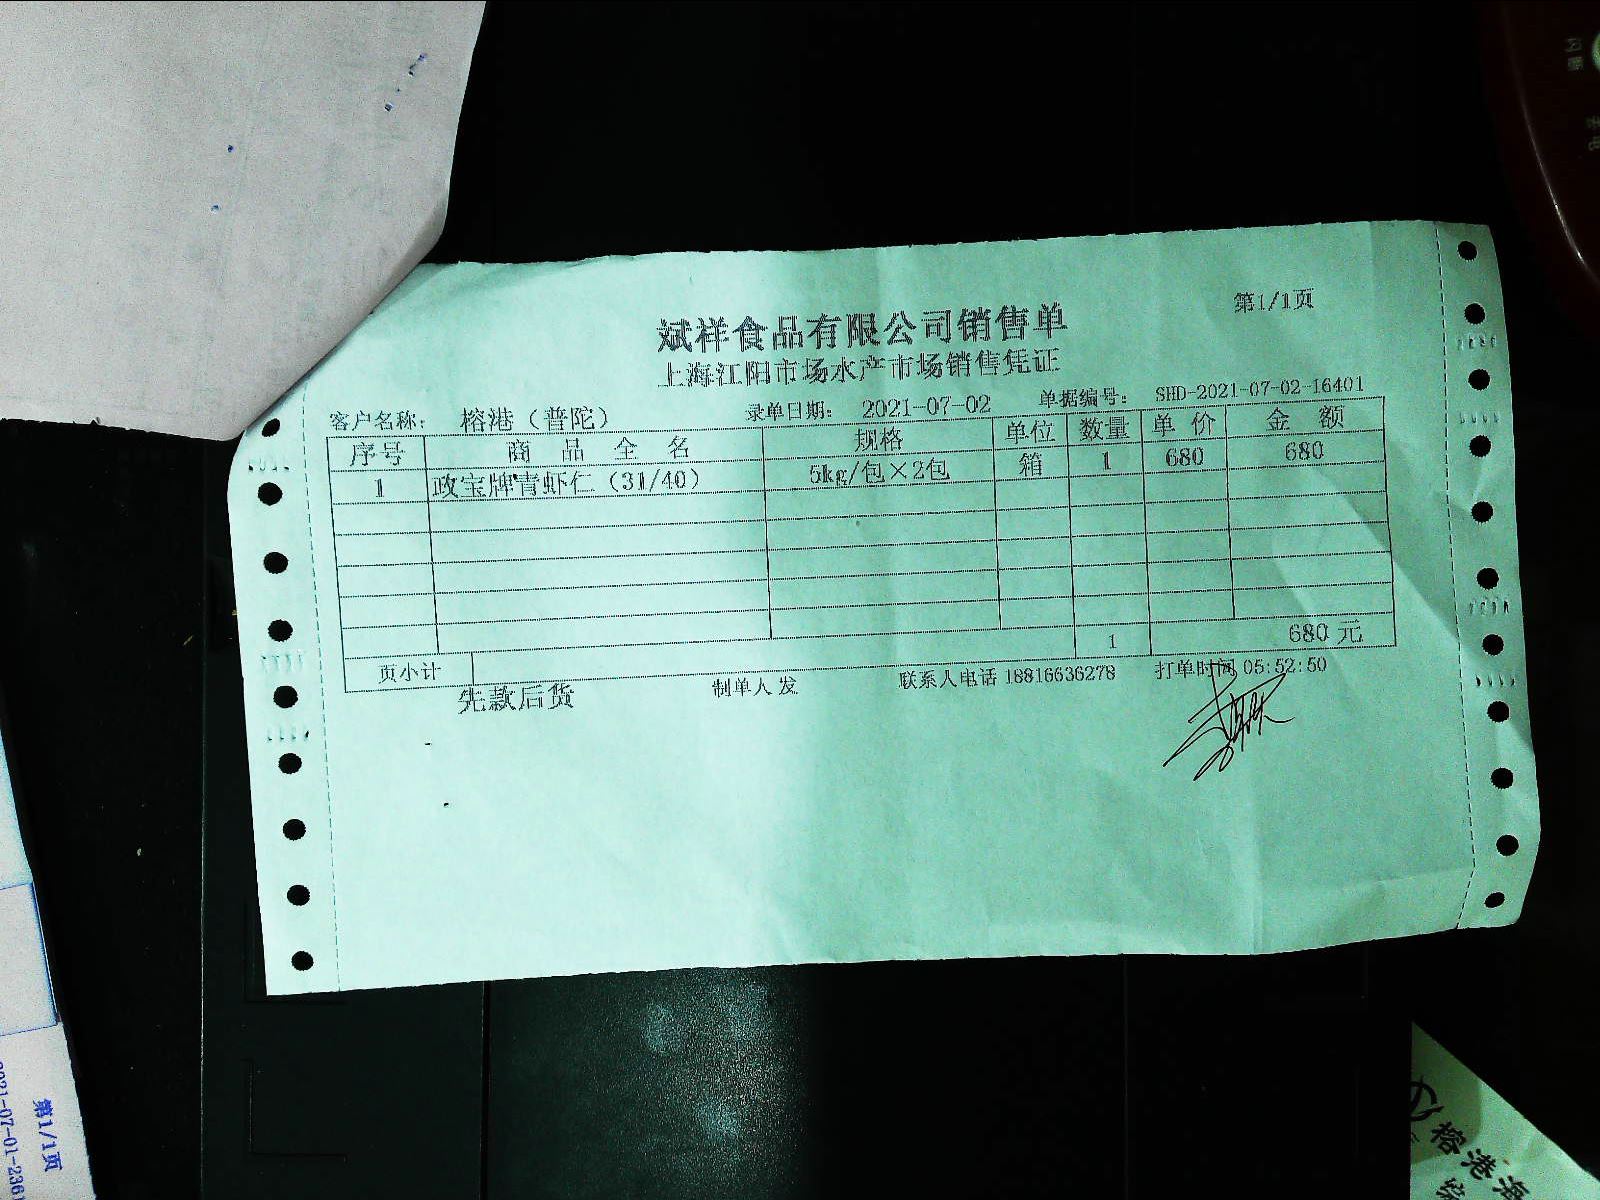 第1/1页
斌祥食品有限公司销售单
上海江阳市场水产市场销售凭证
客户名称: 榕港（普陀） 录单日期: 2021-07-02 单据编号: SHD-2021-07-02-16401
序号 商品全名 规格 单位 数量 单价 金额
1 政宝牌青虾仁（31/40） 5kg/包×2包 箱 1 680 680
页小计 1 680 元
先款后货 制单人 发 联系人电话 18816636278 打单时间 05:52:50
第1/1页
榕港海